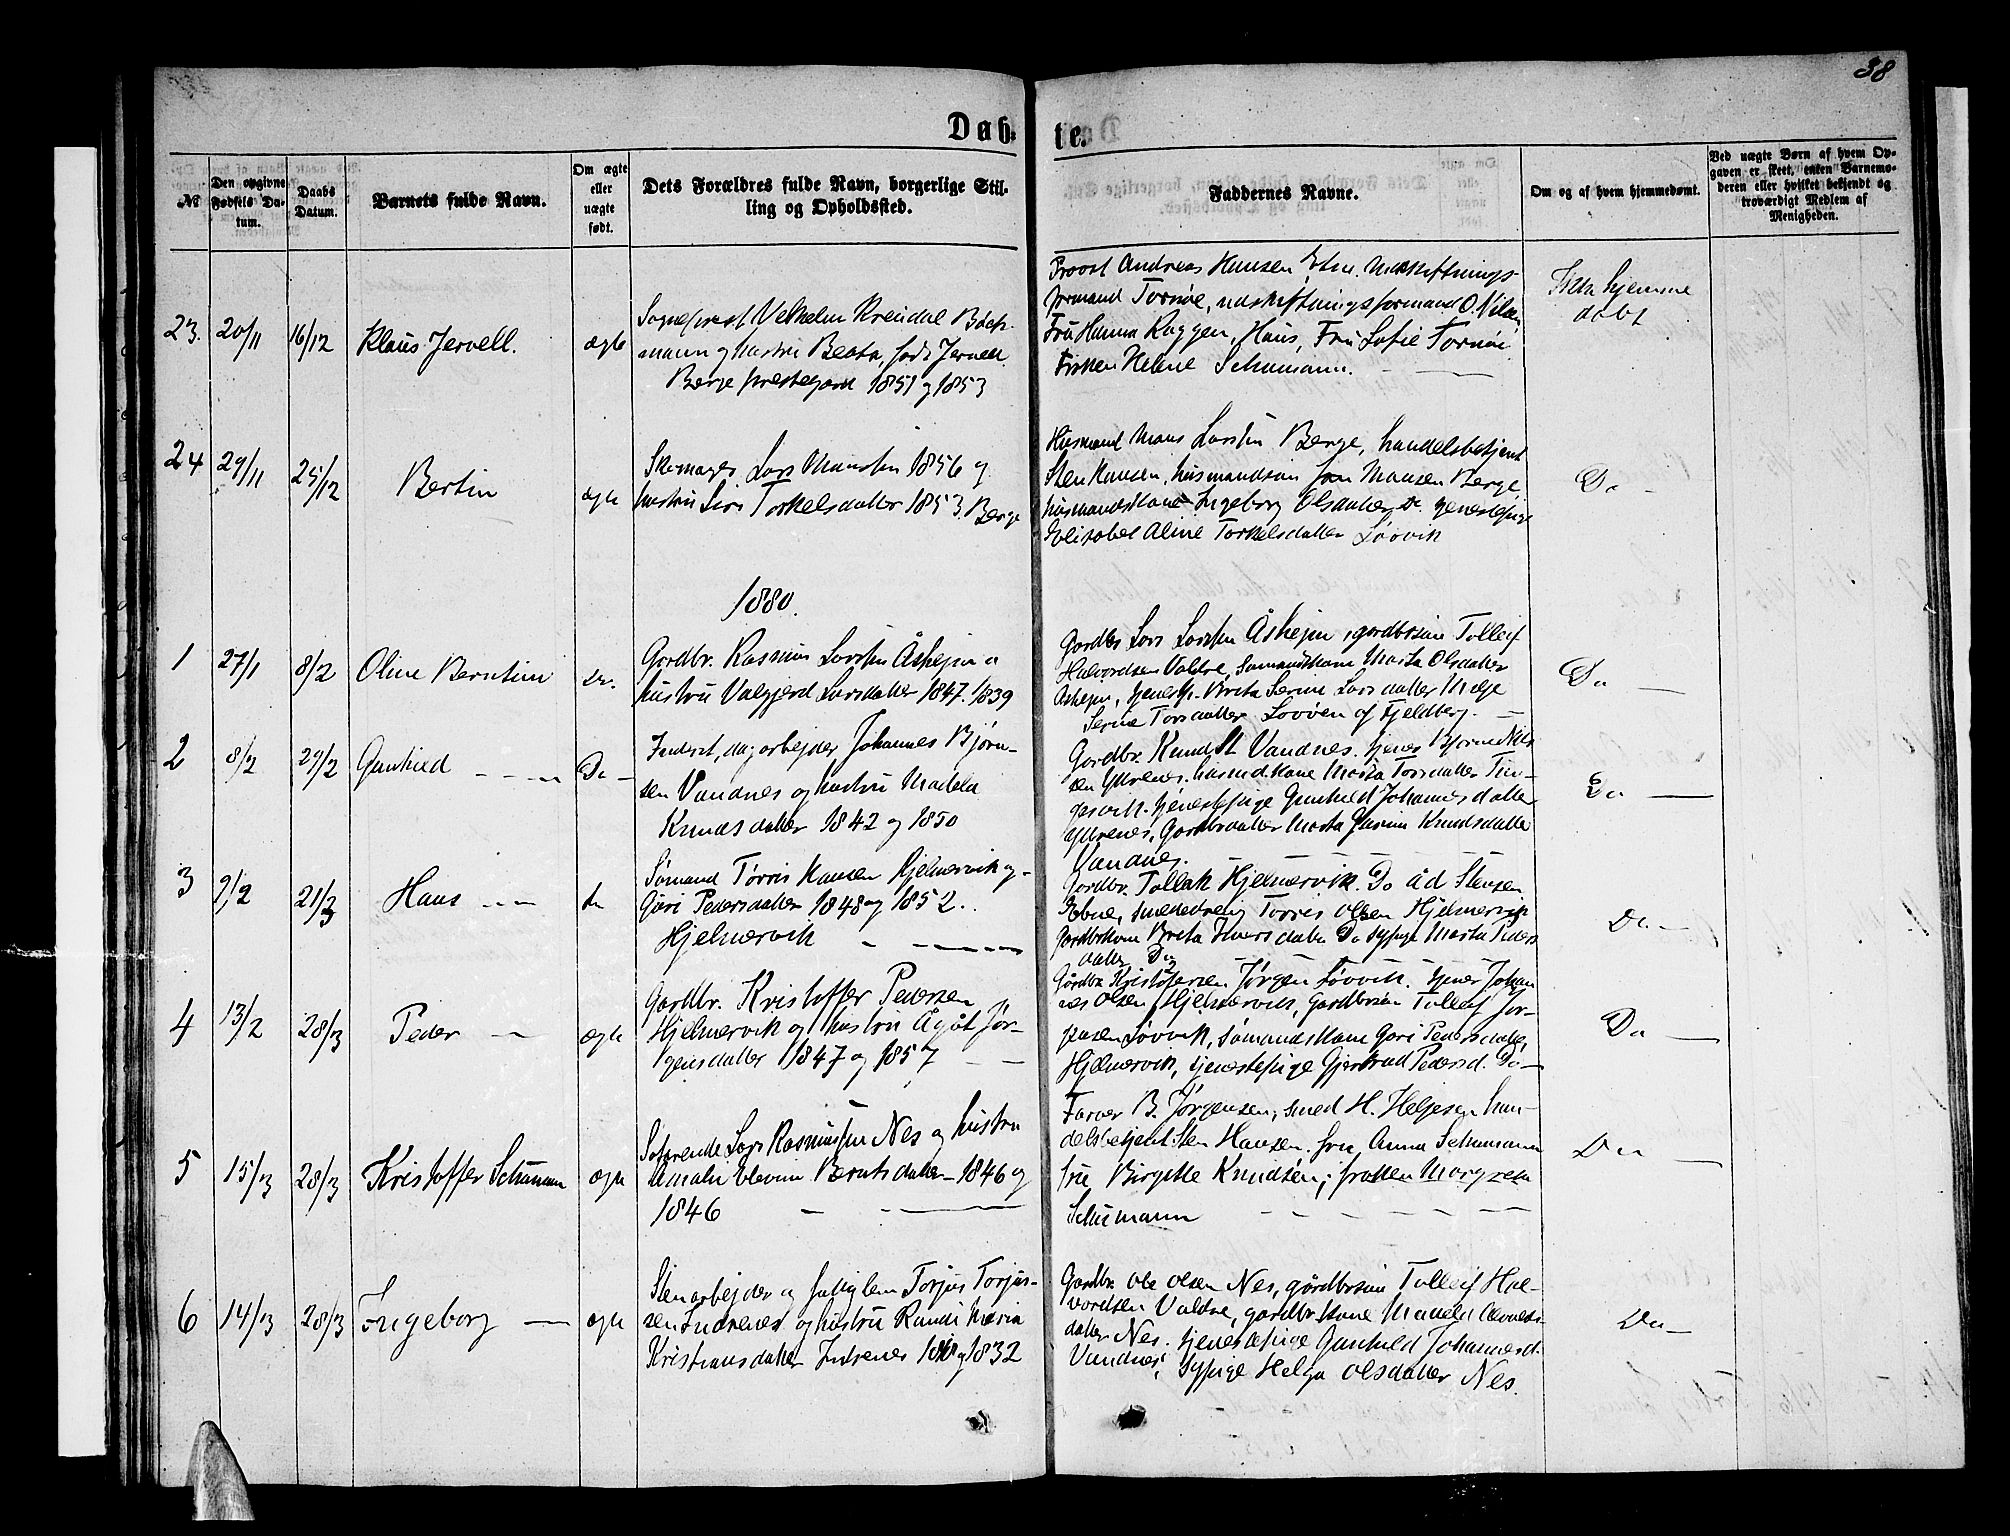 38
Døb-
te.
№
Den opgivne Fødsels Da-
tum.
Daabs
Datum.
Barnets fulde Navn.
Om ægte
eller
uægte
født.
Dets Forældres fulde Navn, borgerlige Stil-
ling og Opholdssted.
Faddernes Navne.
Om og af hvem hjemmedøbt.
Ved uægte Børn af hvem Op-
gaven er skeet, enten Barnemo-
deren eller hvilket bekjendt og
troværdigt Medlem af
Menigheden.
23. 20/11 16/12 Klaus Jervell. ægte
Sogneprest Velhelm Kreidal Bøck-
mann og hustru Beata, født Jervell
Berge prestegard 1851 og 1853
Provst Andreas Hansen Etne. Udskiftnings-
formand Tornøe, udskiftningsformand O.
Fru Hanna Roggen, Haus, Fru Sofie Tornøe
Frøken Helene Schumann.
Ikke hjemme
døbt
24 29/11 25/12 Bertin ægte
Skomager Lars Manssen 1856 og
hustru Siri Torkelsdatter 1853. Berge
Husmand Mons Larsen Berge, handelsbetjent
Sten Hansen, husmandsøn Monsen Berge,
husmandskone Ingeborg Olsdatter Do. tjenestepige
Elisabet Aline Torkelsdatter Løvvik
Do -
1880.
1 27/1 8/2 Oline Berntine
Gardbr. Rasmus Larsen Åshejm o
hustru Valgjerd Larsdatter 1847. 1839
Gardbr Lars Larsen Åshejm, gardbrsøn Tolleif
Halvordsen Valdre, Sømandskone Marta Olsdatter
Åshejm, tjenestp. Brita Serine Larsdatter
Serine Torsdatter Løvven af Fjeldberg.
Do -
2 8/2 29/2 Gunhild Do -
Inderst, dagarbejder Johannes Bjørn-
sen Vandnes og hustru Madela
Knudsdatter 1842 og 1850
Gardbr. Knud St Vandnes. tjener Bjørne Nils
sen Ytrenes. husmdkone Marta Torsdatter Tun-
gesvik. tjenestepige Gunhild Johannesdatter
Ytrenes, Gardbrdatter Marta Knudsdatter
Vandnes.
Do -
3 9/2 21/3 Hans
Sømand Tørris Hansen Hjelmervik og
Gøri Pedersdatter 1848 og 1852.
Hjelmervik
Gardbr. Tollak Hjelmervik. Do Åd Stensen
Ebne, smededreng Torris Olsen Hjelmervik
Gardbrkone Brita Iversdatter Do sypige Marta Peders
datter Do
Do -
4 13/2 28/3 Peder ægte
Gardbr. Kristoffer Pedersen
Hjelmervik og hustru Ågåt Jør-
gensdatter 1847 og 1857
Gårdbr. Jørgen Løvvik. tjener Johan
nes Olsen Hjelmervik, Gardbrsøn Tolleif Jør-
gensen Løvvik, sømandskone Gøri Pedersdatter,
Hjelmervik, tjenestepige Gjertrud Pedersd. Do -
Do -
5 15/3 28/3 Kristoffer Schumann ægte
Søfarende Lars Rasmussen Nes og hustru
Amalie Bentsdatter 1846 og
1846
Farver B. Jørgensen, smed H. Helgesen han-
delsbetjent Sten Hansen. fru Anna Schumann
fru Birgitte Knudsen, frøken Margreta
Schumann
Do -
6 14/3 28/3 Ingeborg ægte
Stenarbejder og Torjus Torjus-
sen Indrenes og hustru Randi Maria
Kristiansdatter Indrenes og 1832
Gardbr. Ole Olsen Nes, gårdbrsøn Tolleif Hal-
vordsen Valdre, gardbr.kone Madela
datter Nes. tjenestepige Gunhild Johannesd.
Vandnes, sypige Helga Olsdatter Nes.
Do -